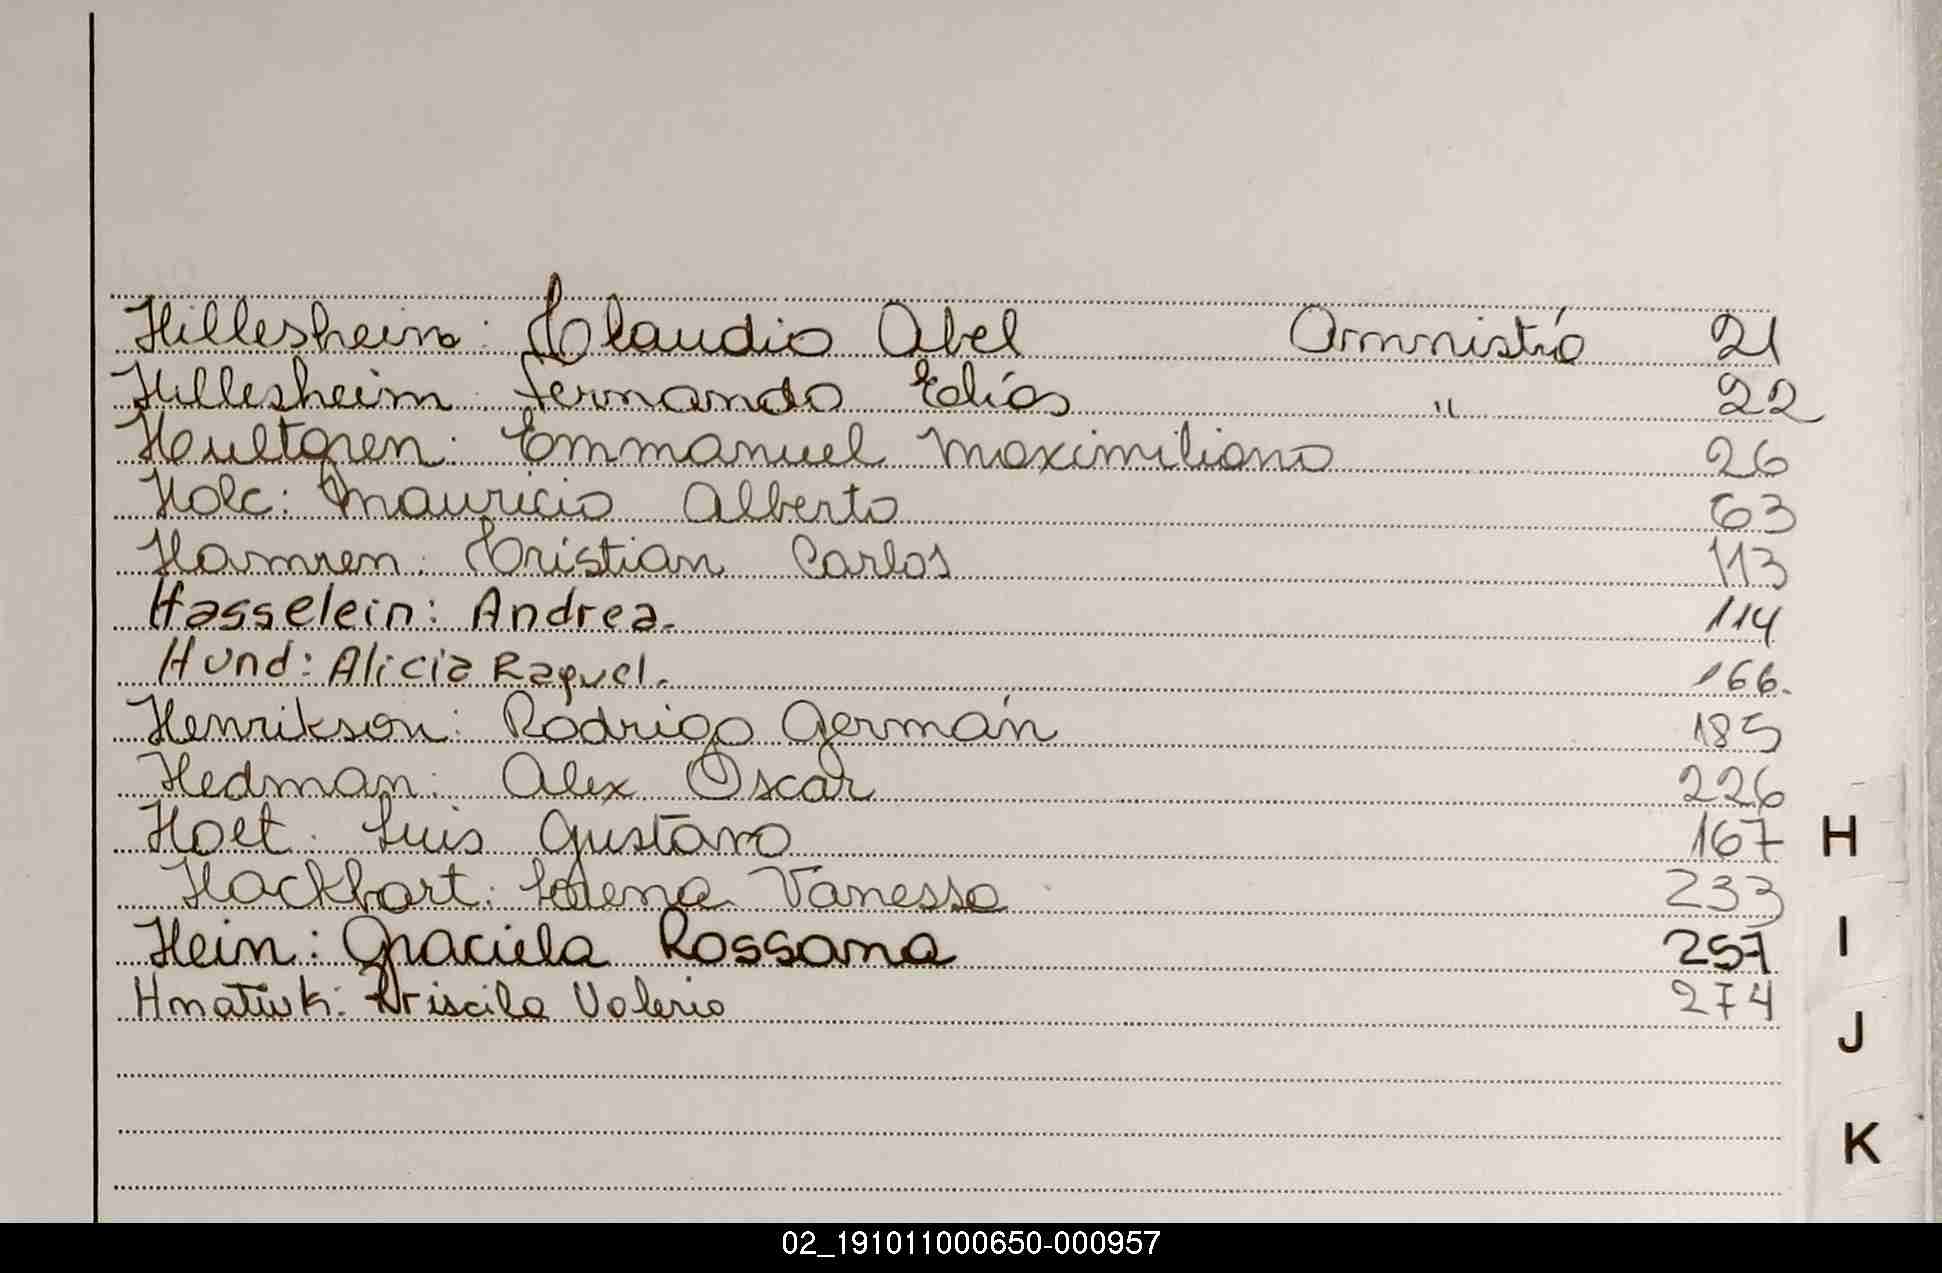 Hillesheim: Claudio Abel Amnistía 21
Hillesheim: Fernando Elías " 22
Hultgren: Emmanuel Maximiliano 26
Holc: Mauricio Alberto 63
Hamren: Cristian Carlos 113
Hasselein: Andrea. 114
Hund: Alicia Raquel. 166.
Henrikson: Rodrigo Germán 185
Hedman: Alex Oscar 226
Luis Gustavo 167
H
Hackbart: Vanessa 233
Hein: Graciela Rossana 257
I
Hnatiuk: Priscila Valeria 274
J
K
02_191011000650-000957